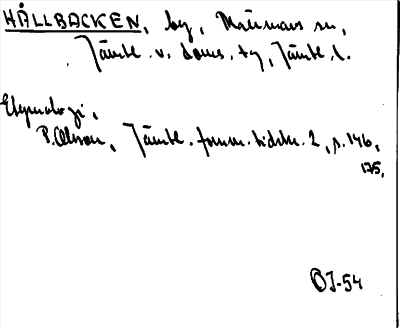 HÅLLBACKEN, by, Mörsils sn,
Jämtl. v. doms. tg, Jämtl. l.
Etymologi,
P. Olsson, Jämtl. fornm. tidskr. 2, s. 146,
175,
OJ-54